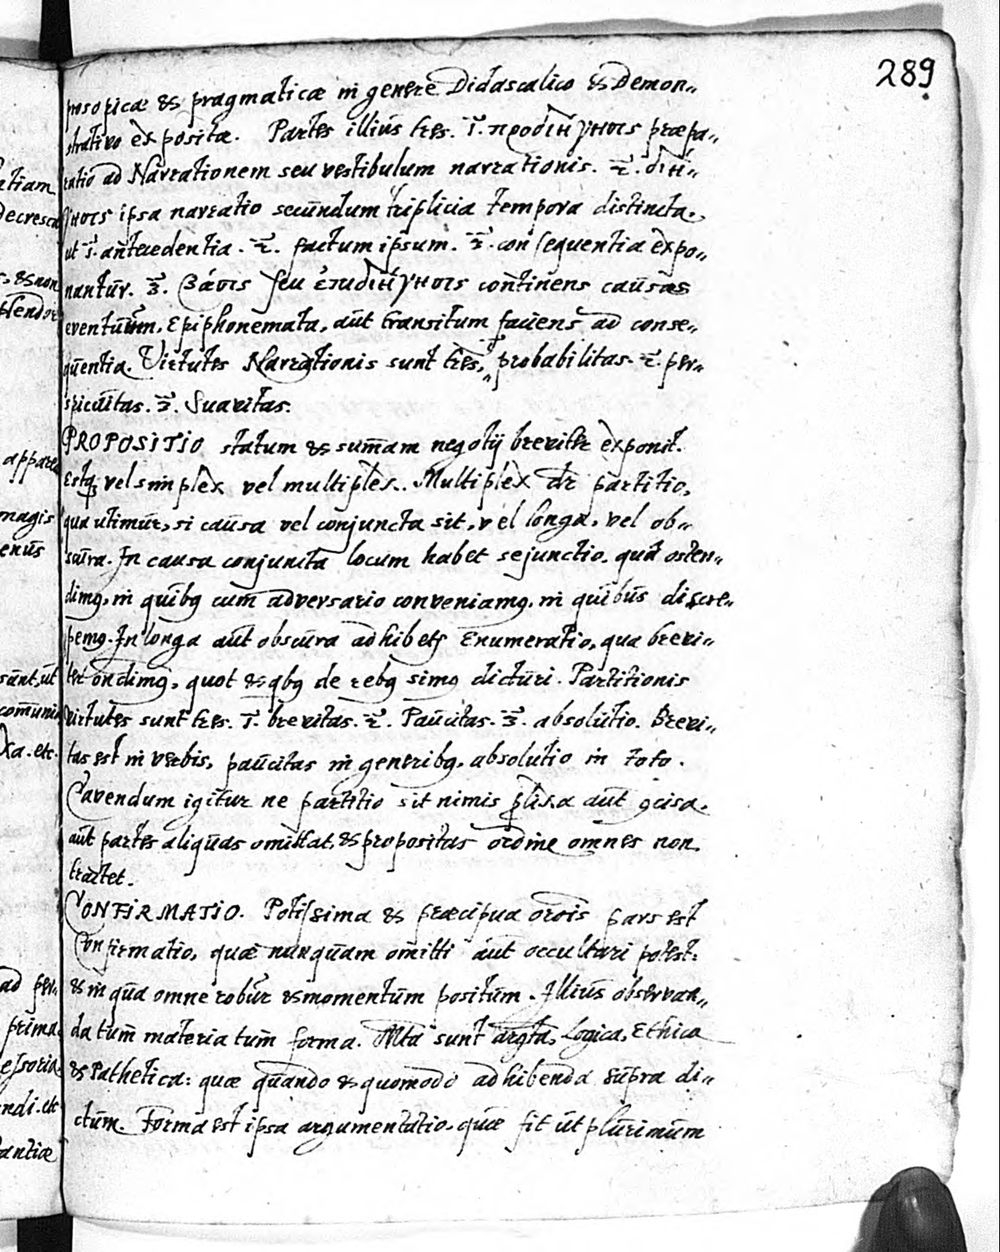 289
prosopicae & pragmaticae in genere Didascalico & Demon„
strativo exposita. Partes illius tres. 1. προδιήγησις praepa„
ratio ad Narrationem seu vestibulum narrationis. 2. διή„
γησις ipsa narratio secundum triplicia tempora distincta,
ut 1. antecedentia. 2. factum ipsum. 3. consequentia expo„
nantur. 3. βάσις seu ἐπιδιήγησις continens causas
eventuum, Epiphonemata, aut transitum faciens ad conse„
quentia. Virtutes Narrationis sunt tres, 1. probabilitas. 2. per„
spicuitas. 3. Suavitas.
PROPOSITIO statum & sumam negotij breviter exponit.
Estq vel simplex vel multiplex. Multiplex dr partitio,
qua utimur, si causa vel conjuncta sit, vel longa, vel ob„
scura. In causa conjuncta locum habet sejunctio, qua osten„
dimq, in quibq cum adversario conveniamq, in quibus discre„
pemq. In longa aut obscura adhibetr Enumeratio, qua brevi„
ter ondimq, quot & qbq de rebq simq dicturi. Partitionis
virtutes sunt tres. 1. brevitas. 2. Paucitas. 3. absolutio. Brevi„
tas est in verbis, paucitas in generibq, absolutio in toto.
Cavendum igitur ne partitio sit nimis plixa aut 9cisa,
aut partes aliquas omittat, & propositas ordine omnes non
tractet.
CONFIRMATIO. Potissima & praecipua orois pars est
Confirmatio, quae nunquam omitti aut occultari potest.
& in qua omne robur & momentum positum. Illius observan„
da tum materia tum forma. Mta sunt argta, Logica, Ethica
& Pathetica: quae quando & quomodo adhibenda supra di„
ctum. Forma est ipsa argumentatio, quae fit ut plurimum
atiam
decresc
& non
appare
magis
enus
sunt, ut
comuni
xa. etc.
ad per„
prima
essoria
ndi. etc
antiae